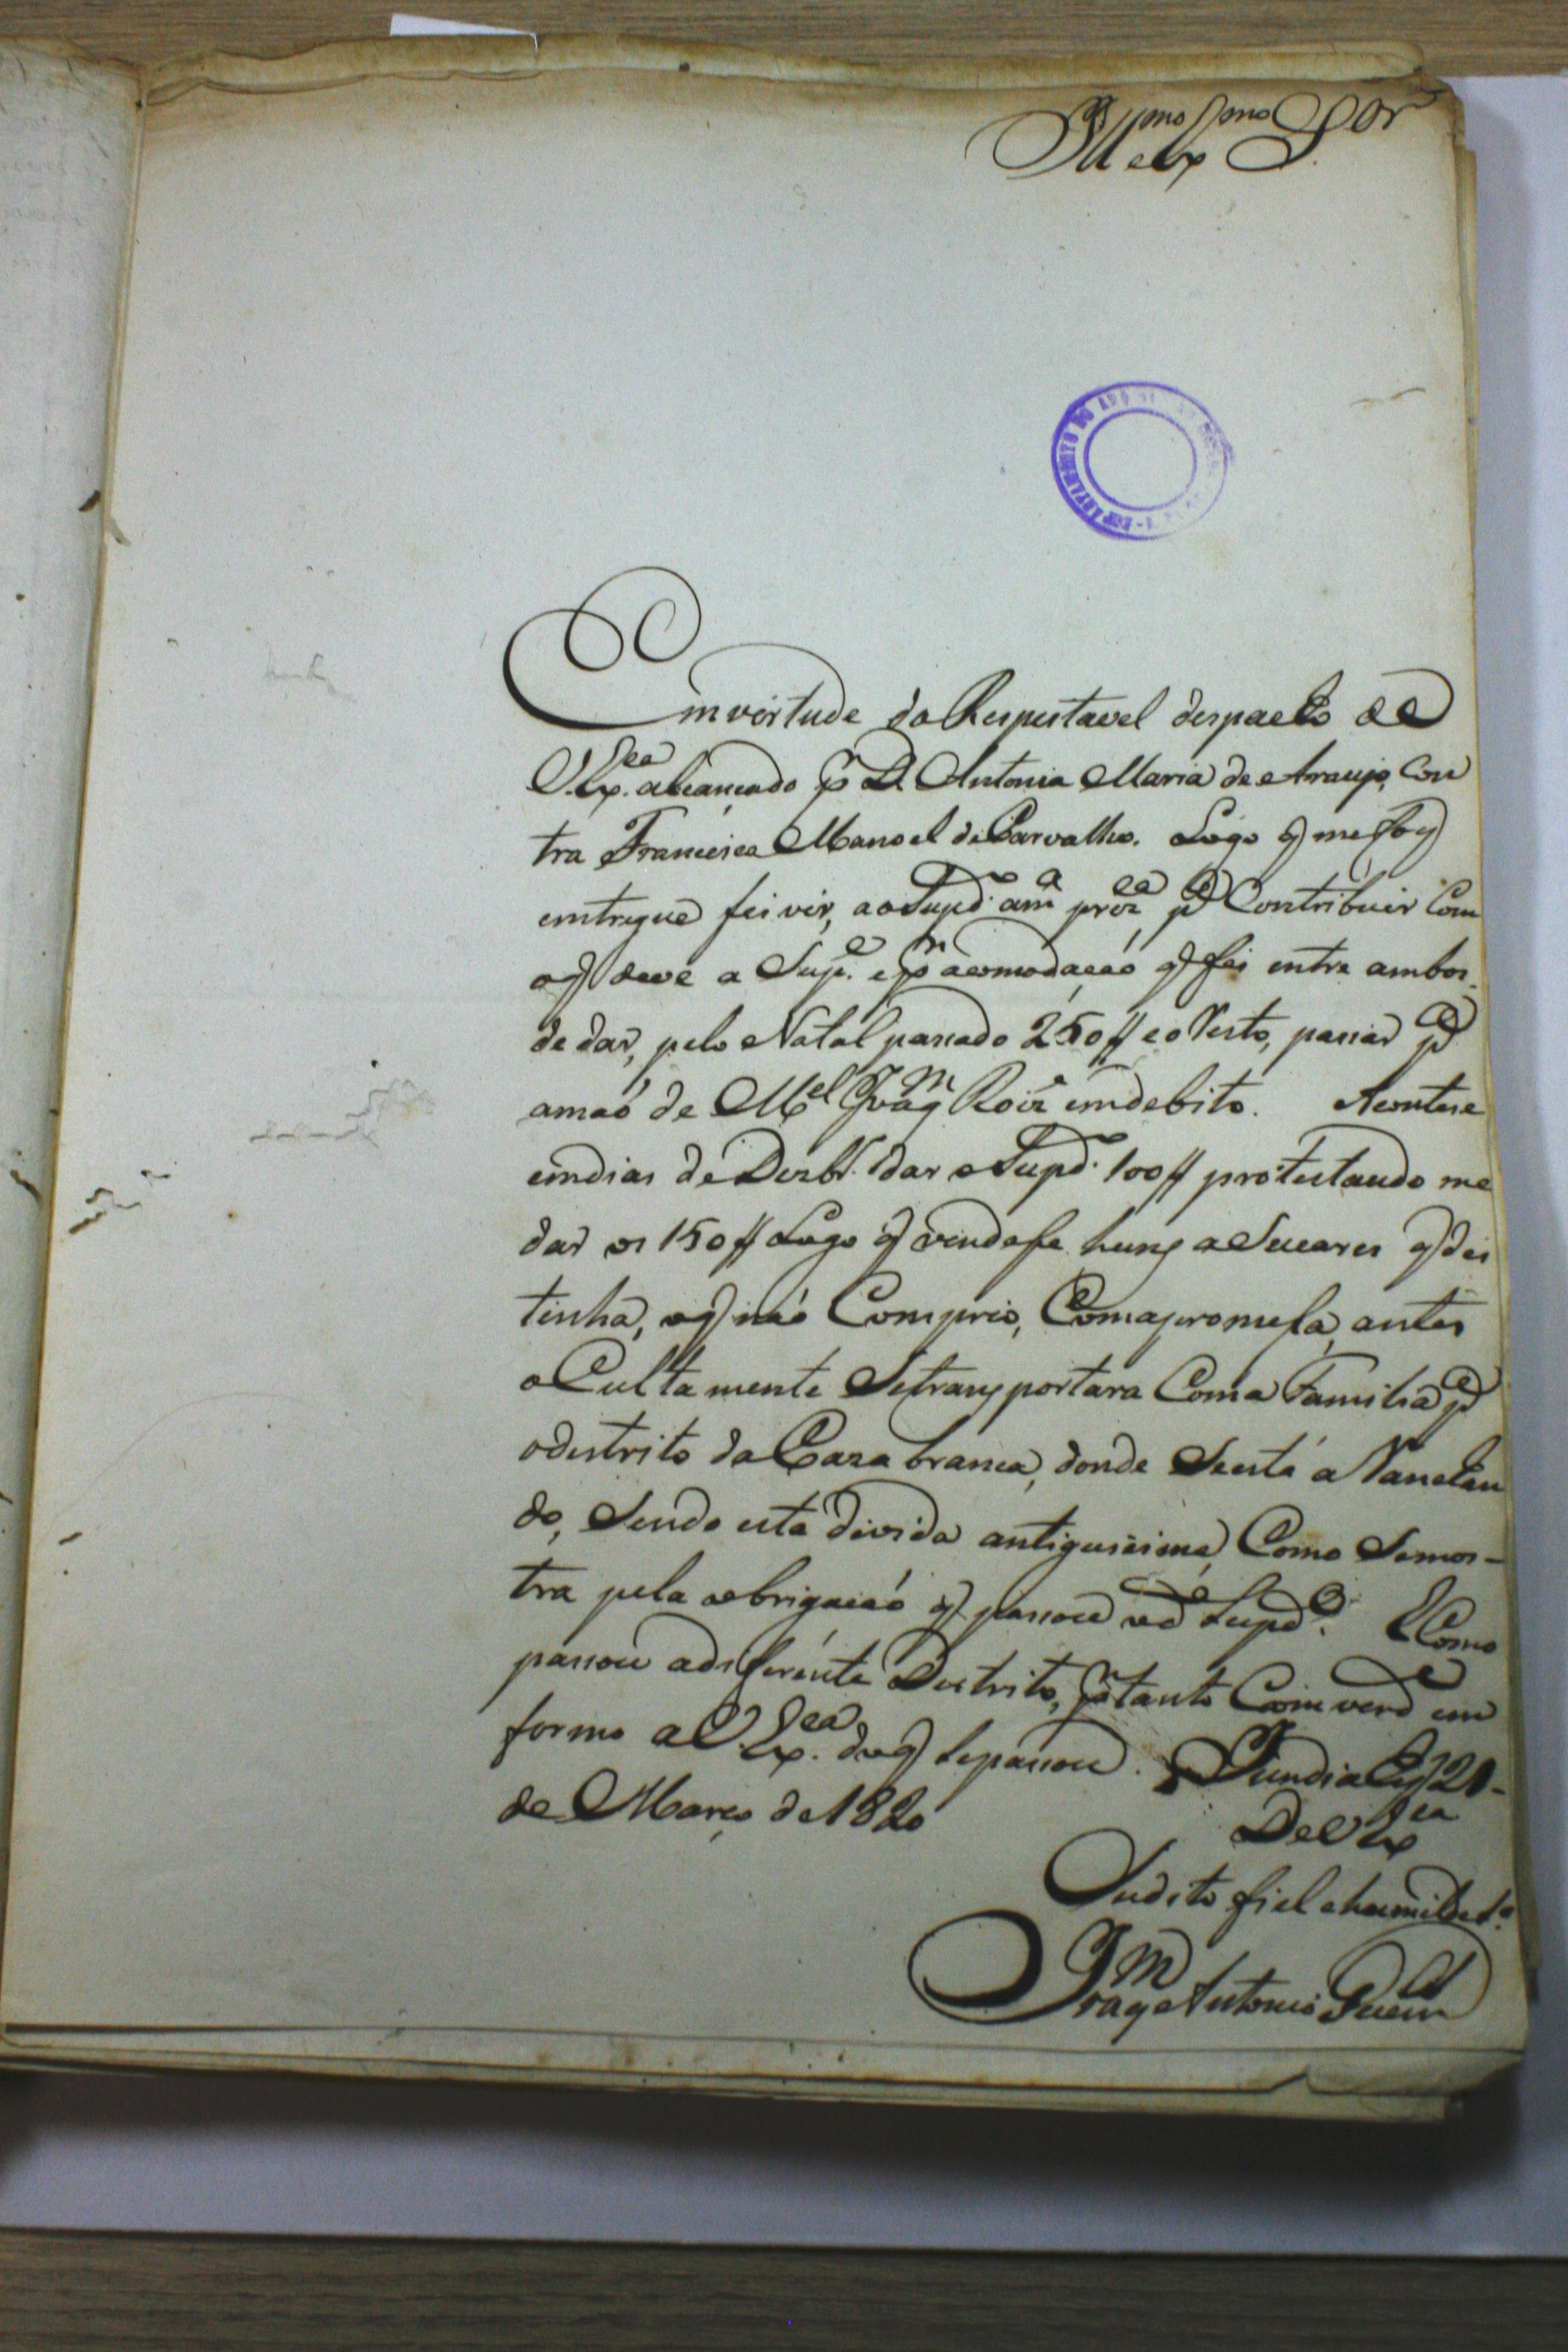 Ill.mo e Ex.mo S.or
Em vertude do Respestavel despacho de
V. Ex.cea alcançado p.r D. Antonia Maria de Araujo, Con
tra Francisco Manoel de Carvalho. Logo q me foy
emtregue fei vir, ao Supd.o am.a prez.ca p.a Contribuir Com
oq deve a Sup.e e p.r acomodação q fei entre ambos
de dar, pelo Natal passado 250// e o Resto, passar p.a
amaó de M.el Joaq.m Roiz emdebito. Acontese
emdias de Dezbr. dar o Supd.o 100// protestando me
dar os 150// Logo q vendese huns aSucares q dei
tinha, oq naó Comprio, Comapromesa, antes
oCultamente Setransportara Coma Familia p.a
odestrito da Caza branca, donde Seestá aRanchan
do, Sendo esta divida antiguissima, Como Semos-
tra pela aobrigaçaó q passou od.e Supd.o. ECome
passou adiferente Destrito, p.r tanto Com verd.e em
formo a V. Ex.cea doq sepassou. Jundiahy 21
de Março de 1820
De V Ex.ca
Sudito fiel ehumilde
Joaq.m Antonio